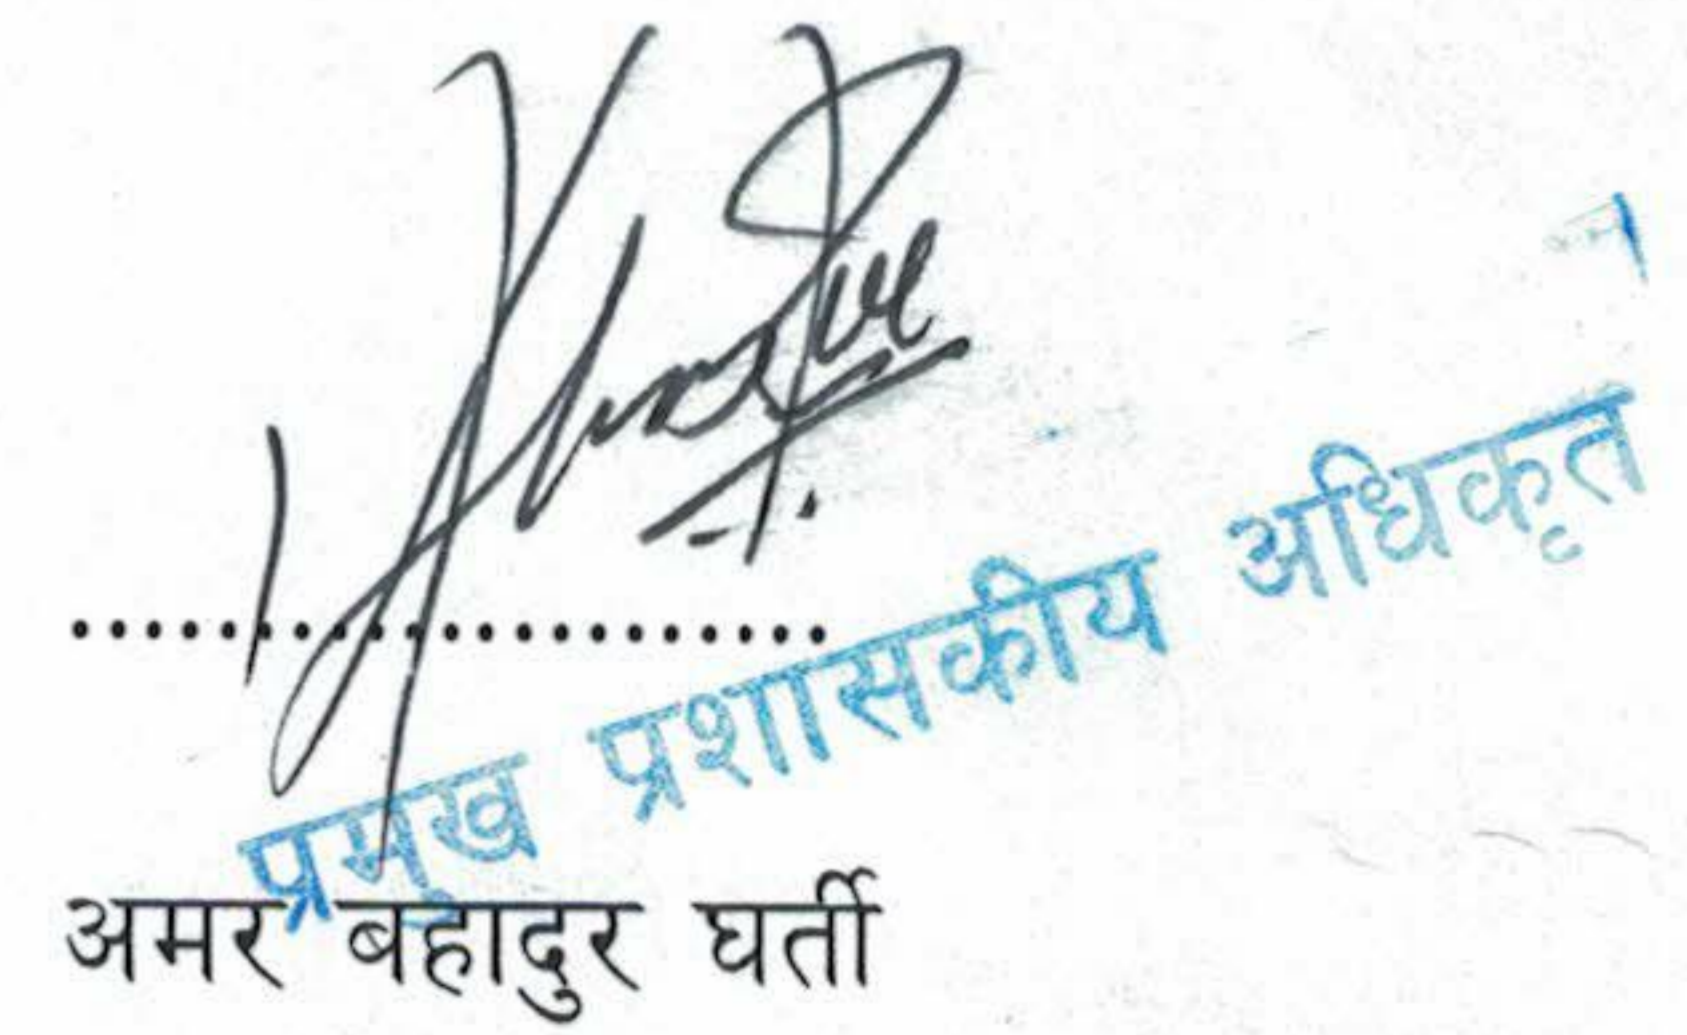 प्रमुख प्रशासकीय अधिकृत
अमर बहादुर घर्ती